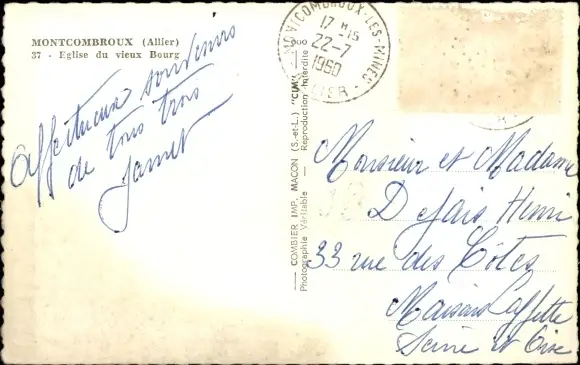 MONTCOMBROUX (Allier)
37 - Eglise du vieux Bourg
Affectueux souvenirs
de tous trois
COMBIER IMP. MACON (S.-et-L.) "CIM"
Photographie Véritable - Reproduction Interdite
MONTCOMBROUX-LES-MINES
17 H -15
22-7
1960
ALLIER
Monsieur et Madame
Dejais Henri
33 rue des Côtes
Maisons Laffitte
Seine et Oise